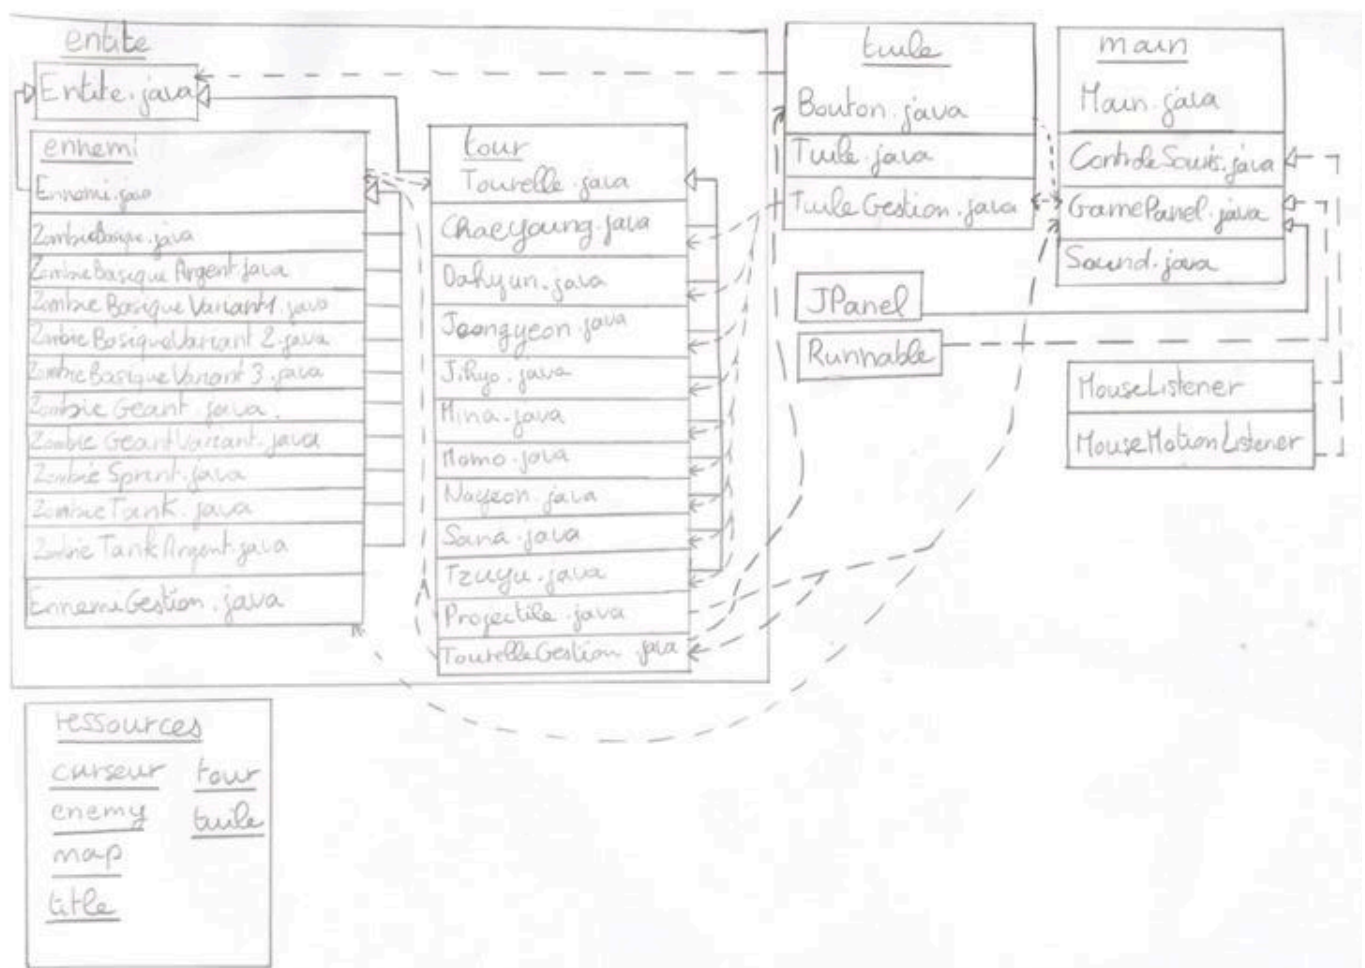 entite
Entite.java
ennemi
Ennemi.java
ZombieBasique.java
ZombieBasiqueArgent.java
ZombieBasiqueVariant1.java
ZombieBasiqueVariant2.java
ZombieBasiqueVariant3.java
ZombieGeant.java
ZombieGeantVariant.java
ZombieSprint.java
ZombieTank.java
ZombieTankArgent.java
EnnemiGestion.java
tour
Tourelle.java
Chaeyoung.java
Dahyun.java
Jeongyeon.java
Jihyo.java
Mina.java
Momo.java
Nayeon.java
Sana.java
Tzuyu.java
Projectile.java
TourelleGestion.java
tuile
Bouton.java
Tuile.java
TuileGestion.java
main
Main.java
ControleSouris.java
GamePanel.java
Sound.java
JPanel
Runnable
MouseListener
MouseMotionListener
ressources
curseur
enemy
map
title
tour
tuile